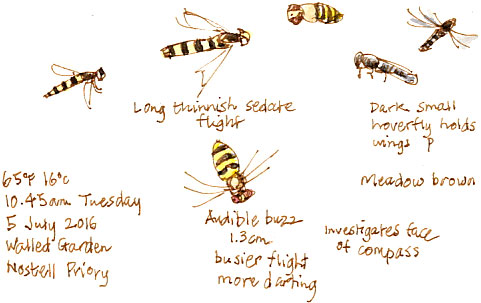 Long thinnish sedate
flight
Dark small
hoverfly holds
wings
Meadow brown
65°F 16°C
10.45am Tuesday
5 July 2016
Walled Garden
Nostell Priory
Audible buzz
1.3cm
busier flight
more darting
Investigates face
of compass